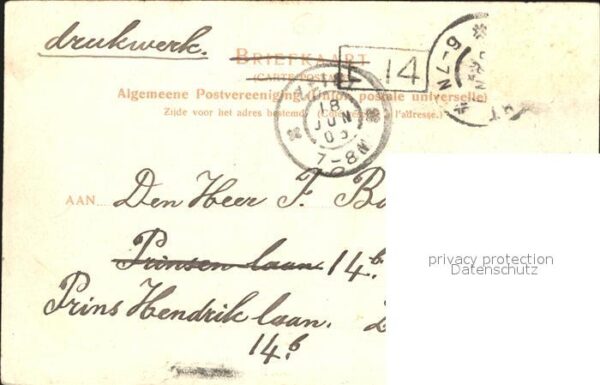 drukwerk.
BRIEFKAART
(CARTE POSTALE)
14
Algemeene Postvereeniging (Union postale universelle)
Zijde voor het adres bestemd. (Côté l'adresse.)
18
JUN
7-8N
6-7N
AAN Den Heer F.
Prinsen laan 14.b
Prins Hendrik laan.
14.b
privacy protection
Datenschutz